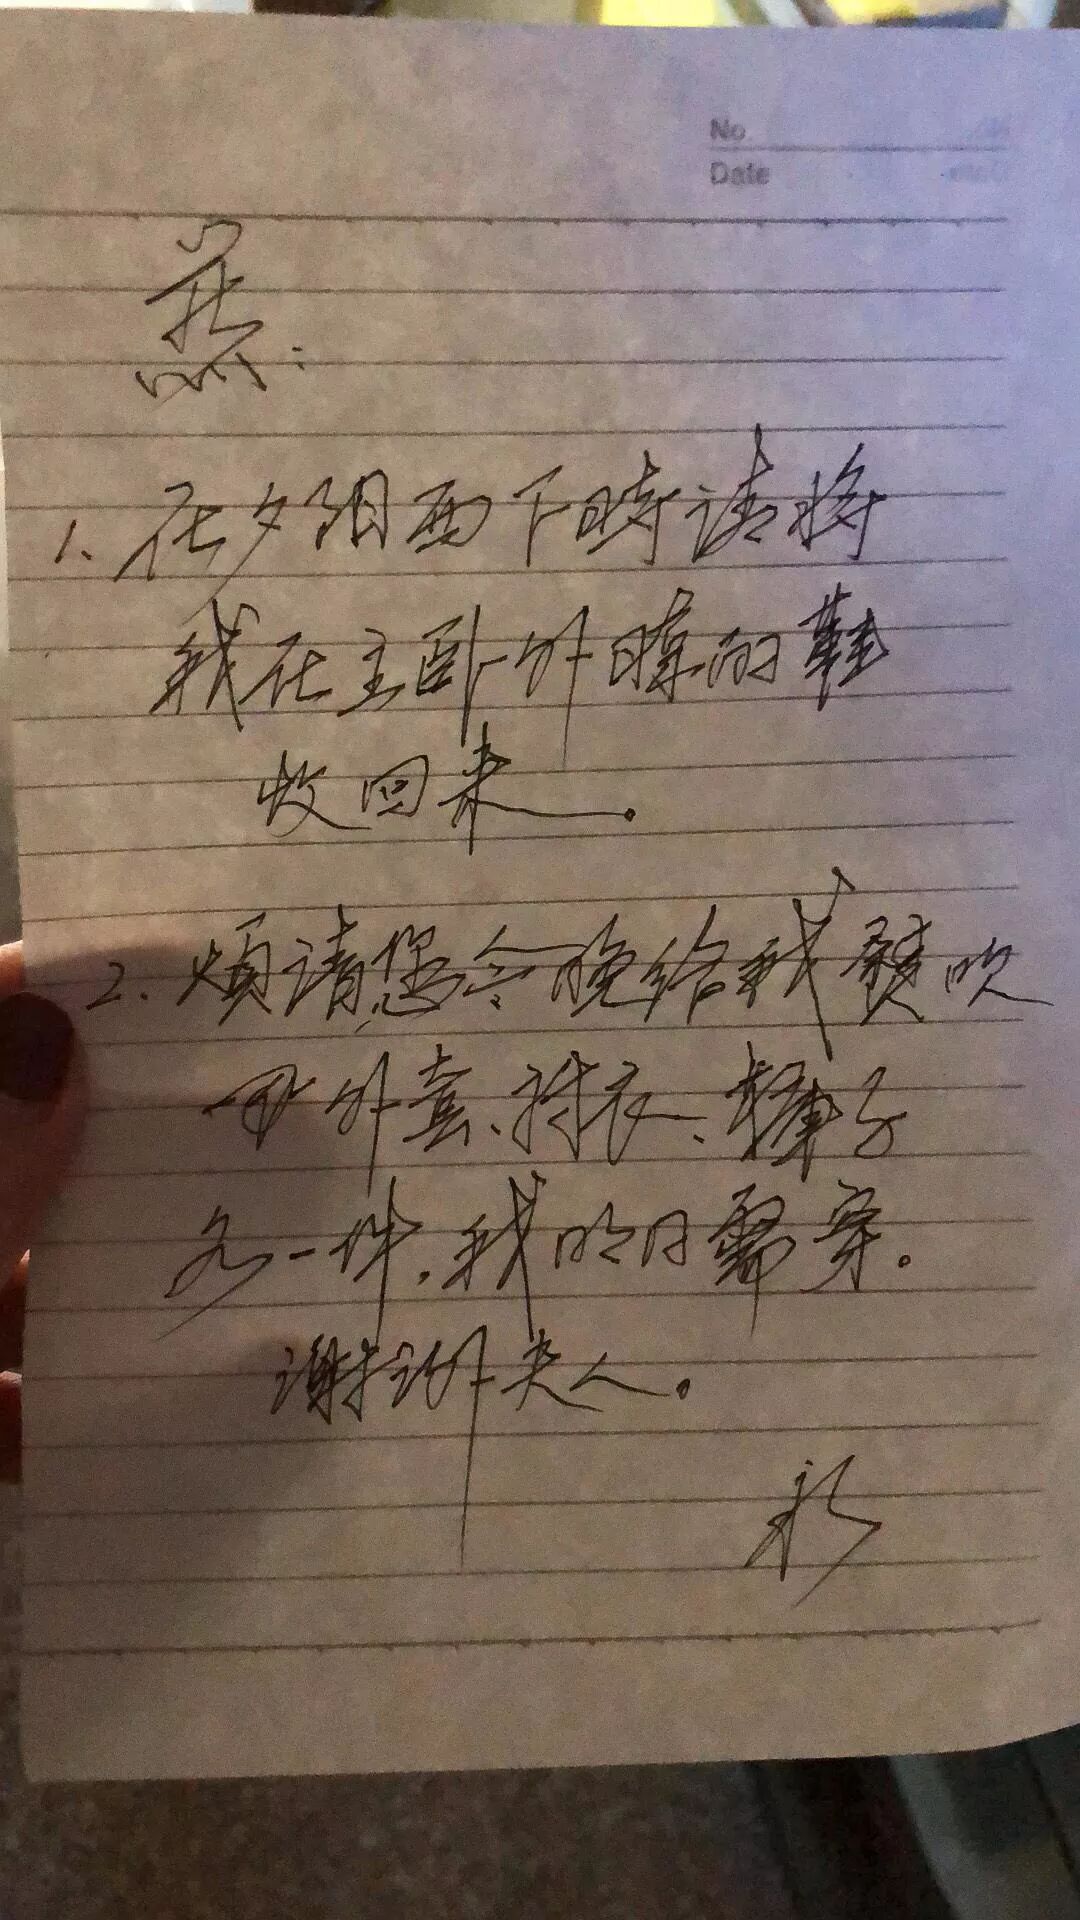 No.
Date
燕:
1、在夕阳西下時请将
我在主卧外晾的鞋
收回来。
2、烦请您今晚给我
外套、衬衣、裤子
各一件,我明日需穿。
谢谢夫人。